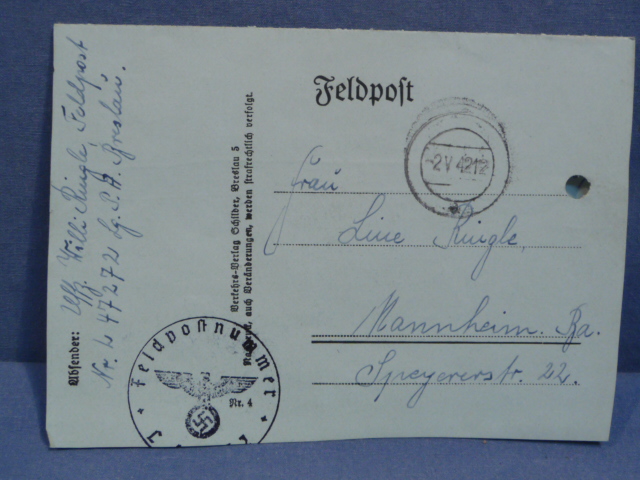 Feldpost
-2.V.42.12
Frau
Line Ringle,
Mannheim. Ba.
Speyererstr. 22.
Absender: Uffz. Willi Ringle, Feldpost
Nr. L 47272 Lg. P.A. Breslau.
Verkehrs-Verlag Schilder, Breslau 5
auch Veränderungen, werden strafrechtlich verfolgt.
Feldpostnummer
Nr. 4